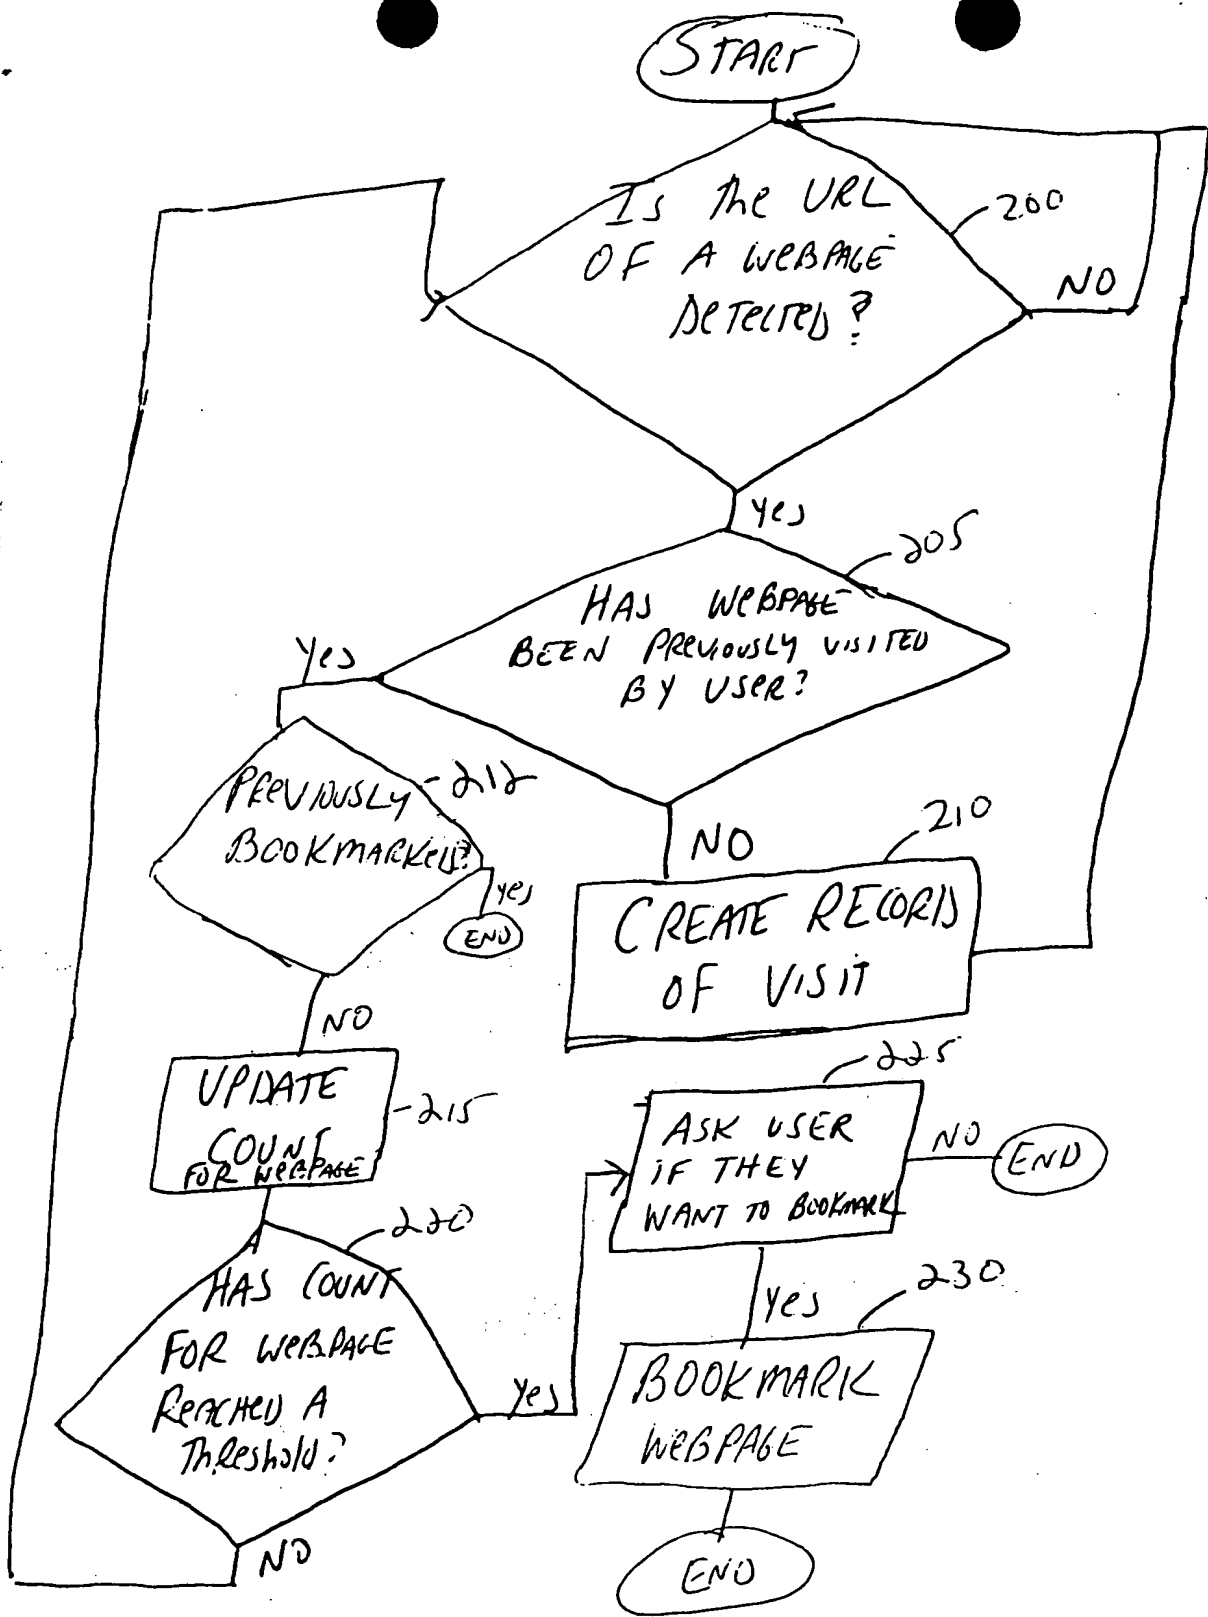 START
Is the URL
OF A WEBPAGE
DETECTED?
200
NO
Yes
205
HAS WEBPAGE
BEEN PREVIOUSLY VISITED
BY USER?
Yes
PREVIOUSLY
BOOKMARKED?
212
yes
END
NO
210
CREATE RECORD
OF VISIT
NO
UPDATE
COUNT
FOR WEBPAGE
215
225
ASK USER
IF THEY
WANT TO BOOKMARK
NO
END
220
HAS COUNT
FOR WEBPAGE
REACHED A
Threshold?
Yes
NO
Yes
230
BOOKMARK
WEBPAGE
END